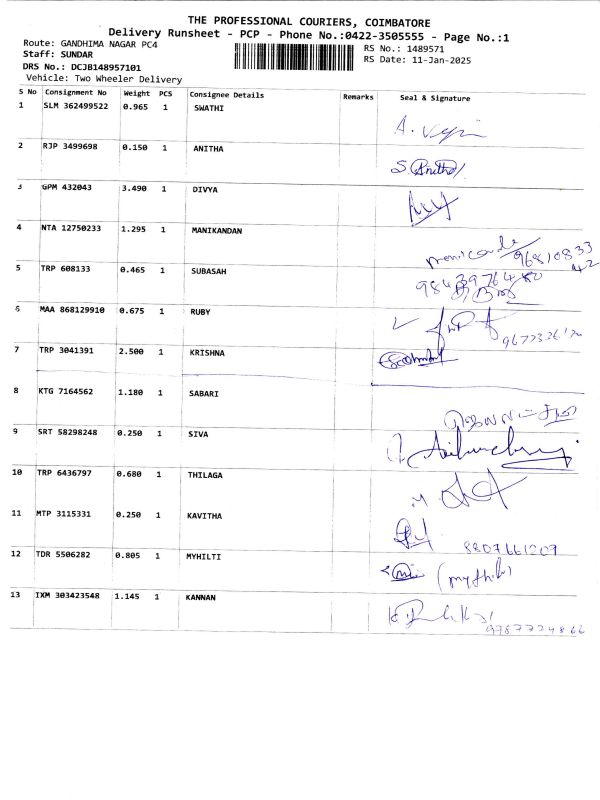 THE PROFESSIONAL COURIERS, COIMBATORE
Delivery Runsheet - PCP - Phone No.:0422-3505555 - Page No.:1
Route: GANDHIMA NAGAR PC4
RS No.: 1489571
Staff: SUNDAR
RS Date: 11-Jan-2025
DRS No.: DCJB148957101
Vehicle: Two Wheeler Delivery
S No Consignment No Weight PCS Consignee Details Remarks Seal & Signature
1 SLM 362499522 0.965 1 SWATHI
2 RJP 3499698 0.150 1 ANITHA S. Anitha
3 GPM 432043 3.490 1 DIVYA
4 NTA 12750233 1.295 1 MANIKANDAN
5 TRP 608133 0.465 1 SUBASAH
6 MAA 868129910 0.675 1 RUBY
7 TRP 3041391 2.500 1 KRISHNA
8 KTG 7164562 1.180 1 SABARI
9 SRT 58298248 0.250 1 SIVA
10 TRP 6436797 0.680 1 THILAGA
11 MTP 3115331 0.250 1 KAVITHA 8807661209
12 TDR 5506282 0.805 1 MYHILTI (mythili)
13 IXM 303423548 1.145 1 KANNAN